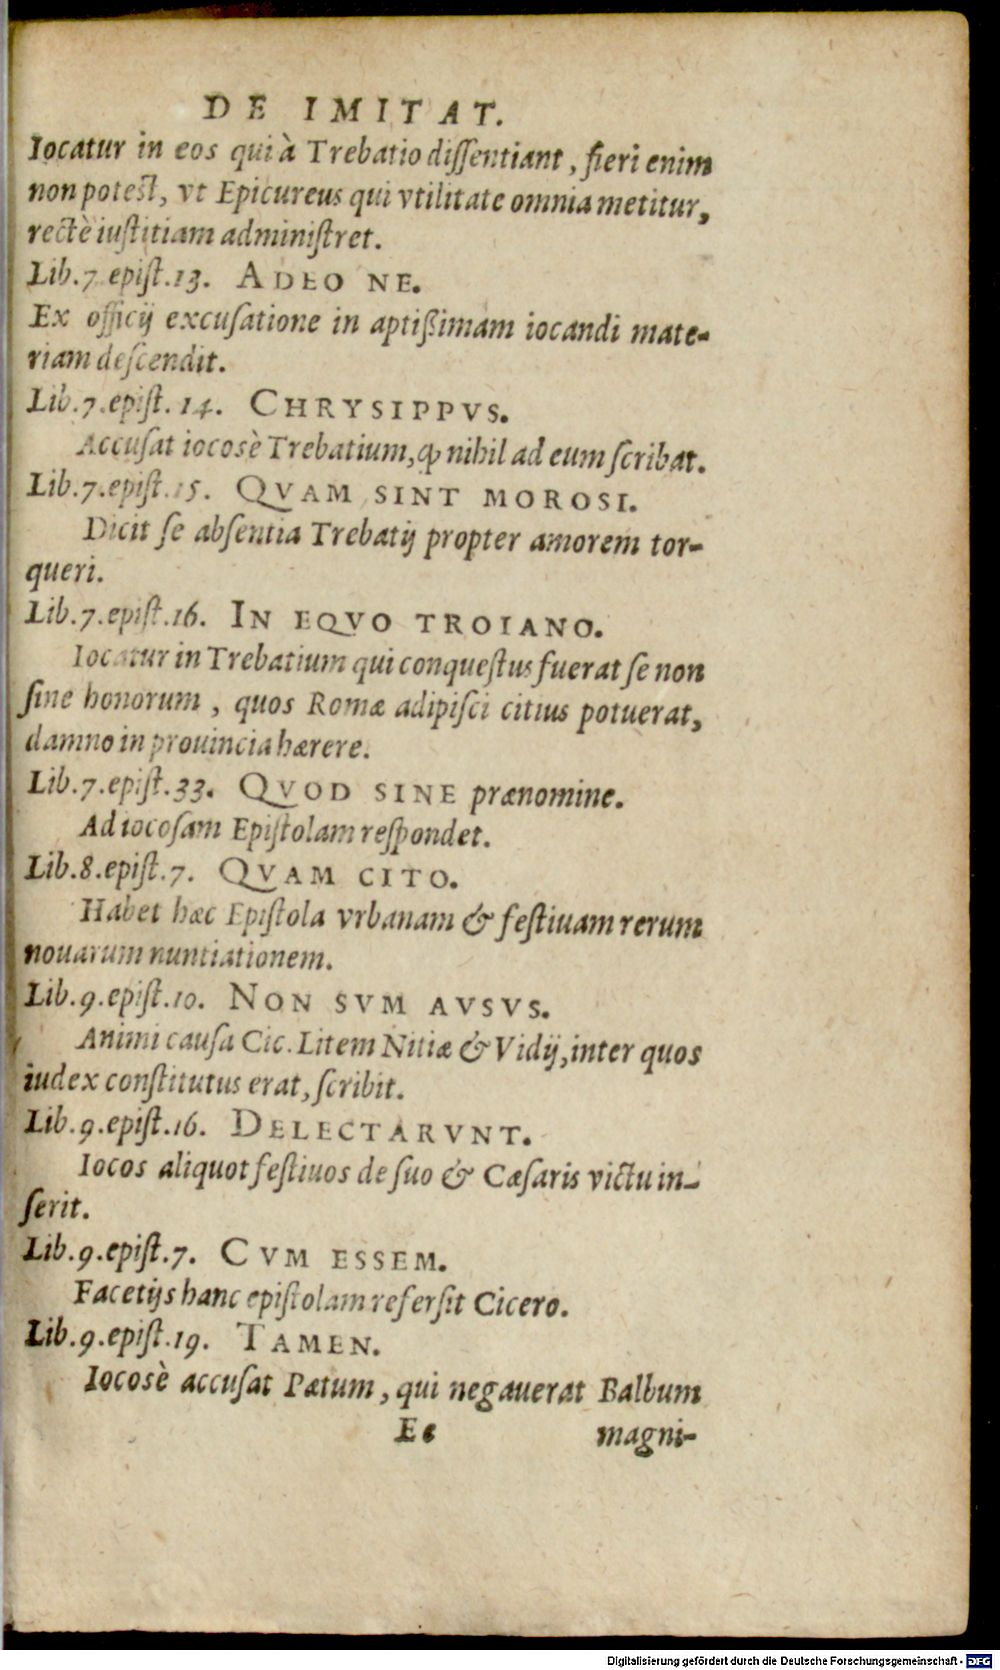 DE IMITAT.
Iocatur in eos qui à Trebatio diſſentiant, fieri enim
non poteſt, vt Epicureus qui vtilitate omnia metitur,
rectè iuſtitiam adminiſtret.
Lib. 7. epiſt. 13. ADEO NE.
Ex officij excuſatione in aptißimam iocandi mate-
riam deſcendit.
Lib. 7. epiſt. 14. CHRYSIPPVS.
Accuſat iocosè Trebatium, ꝙ nihil ad eum ſcribat.
Lib. 7. epiſt. 15. QVAM SINT MOROSI.
Dicit ſe abſentia Trebatij propter amorem tor-
queri.
Lib. 7. epiſt. 16. IN EQVO TROIANO.
Iocatur in Trebatium qui conqueſtus fuerat ſe non
ſine honorum, quos Romæ adipiſci citius potuerat,
damno in prouincia hærere.
Lib. 7. epiſt. 33. QVOD SINE prænomine.
Ad iocoſam Epiſtolam reſpondet.
Lib. 8. epiſt. 7. QVAM CITO.
Habet hæc Epiſtola vrbanam & feſtiuam rerum
nouarum nuntiationem.
Lib. 9. epiſt. 10. NON SVM AVSVS.
Animi cauſa Cic. Litem Nitiæ & Vidij, inter quos
iudex conſtitutus erat, ſcribit.
Lib. 9. epiſt. 16. DELECTARVNT.
Iocos aliquot feſtiuos de ſuo & Cæſaris victu in-
ſerit.
Lib. 9. epiſt. 7. CVM ESSEM.
Facetijs hanc epiſtolam referſit Cicero.
Lib. 9. epiſt. 19. TAMEN.
Iocosè accuſat Pætum, qui negauerat Balbum
Ee magni-
Digitalisierung gefördert durch die Deutsche Forschungsgemeinschaft - DFG